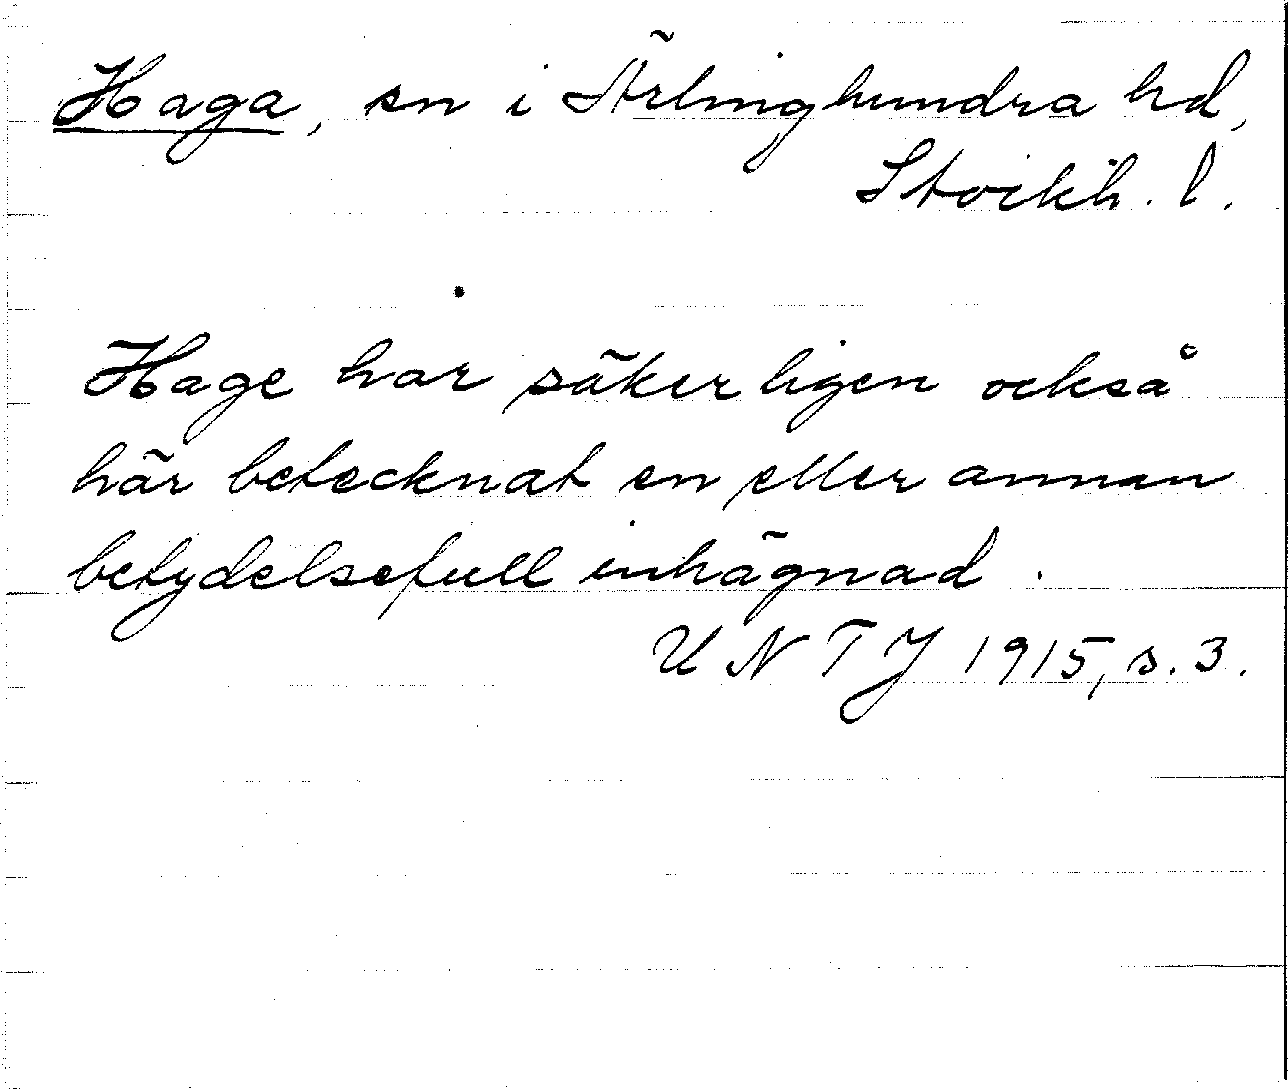 Haga, sn i Ärlinghundra hd,
Stockh. l.
Hage har säkerligen också
här betecknat en eller annan
betydelsefull inhägnad.
UNTJ 1915, s. 3.